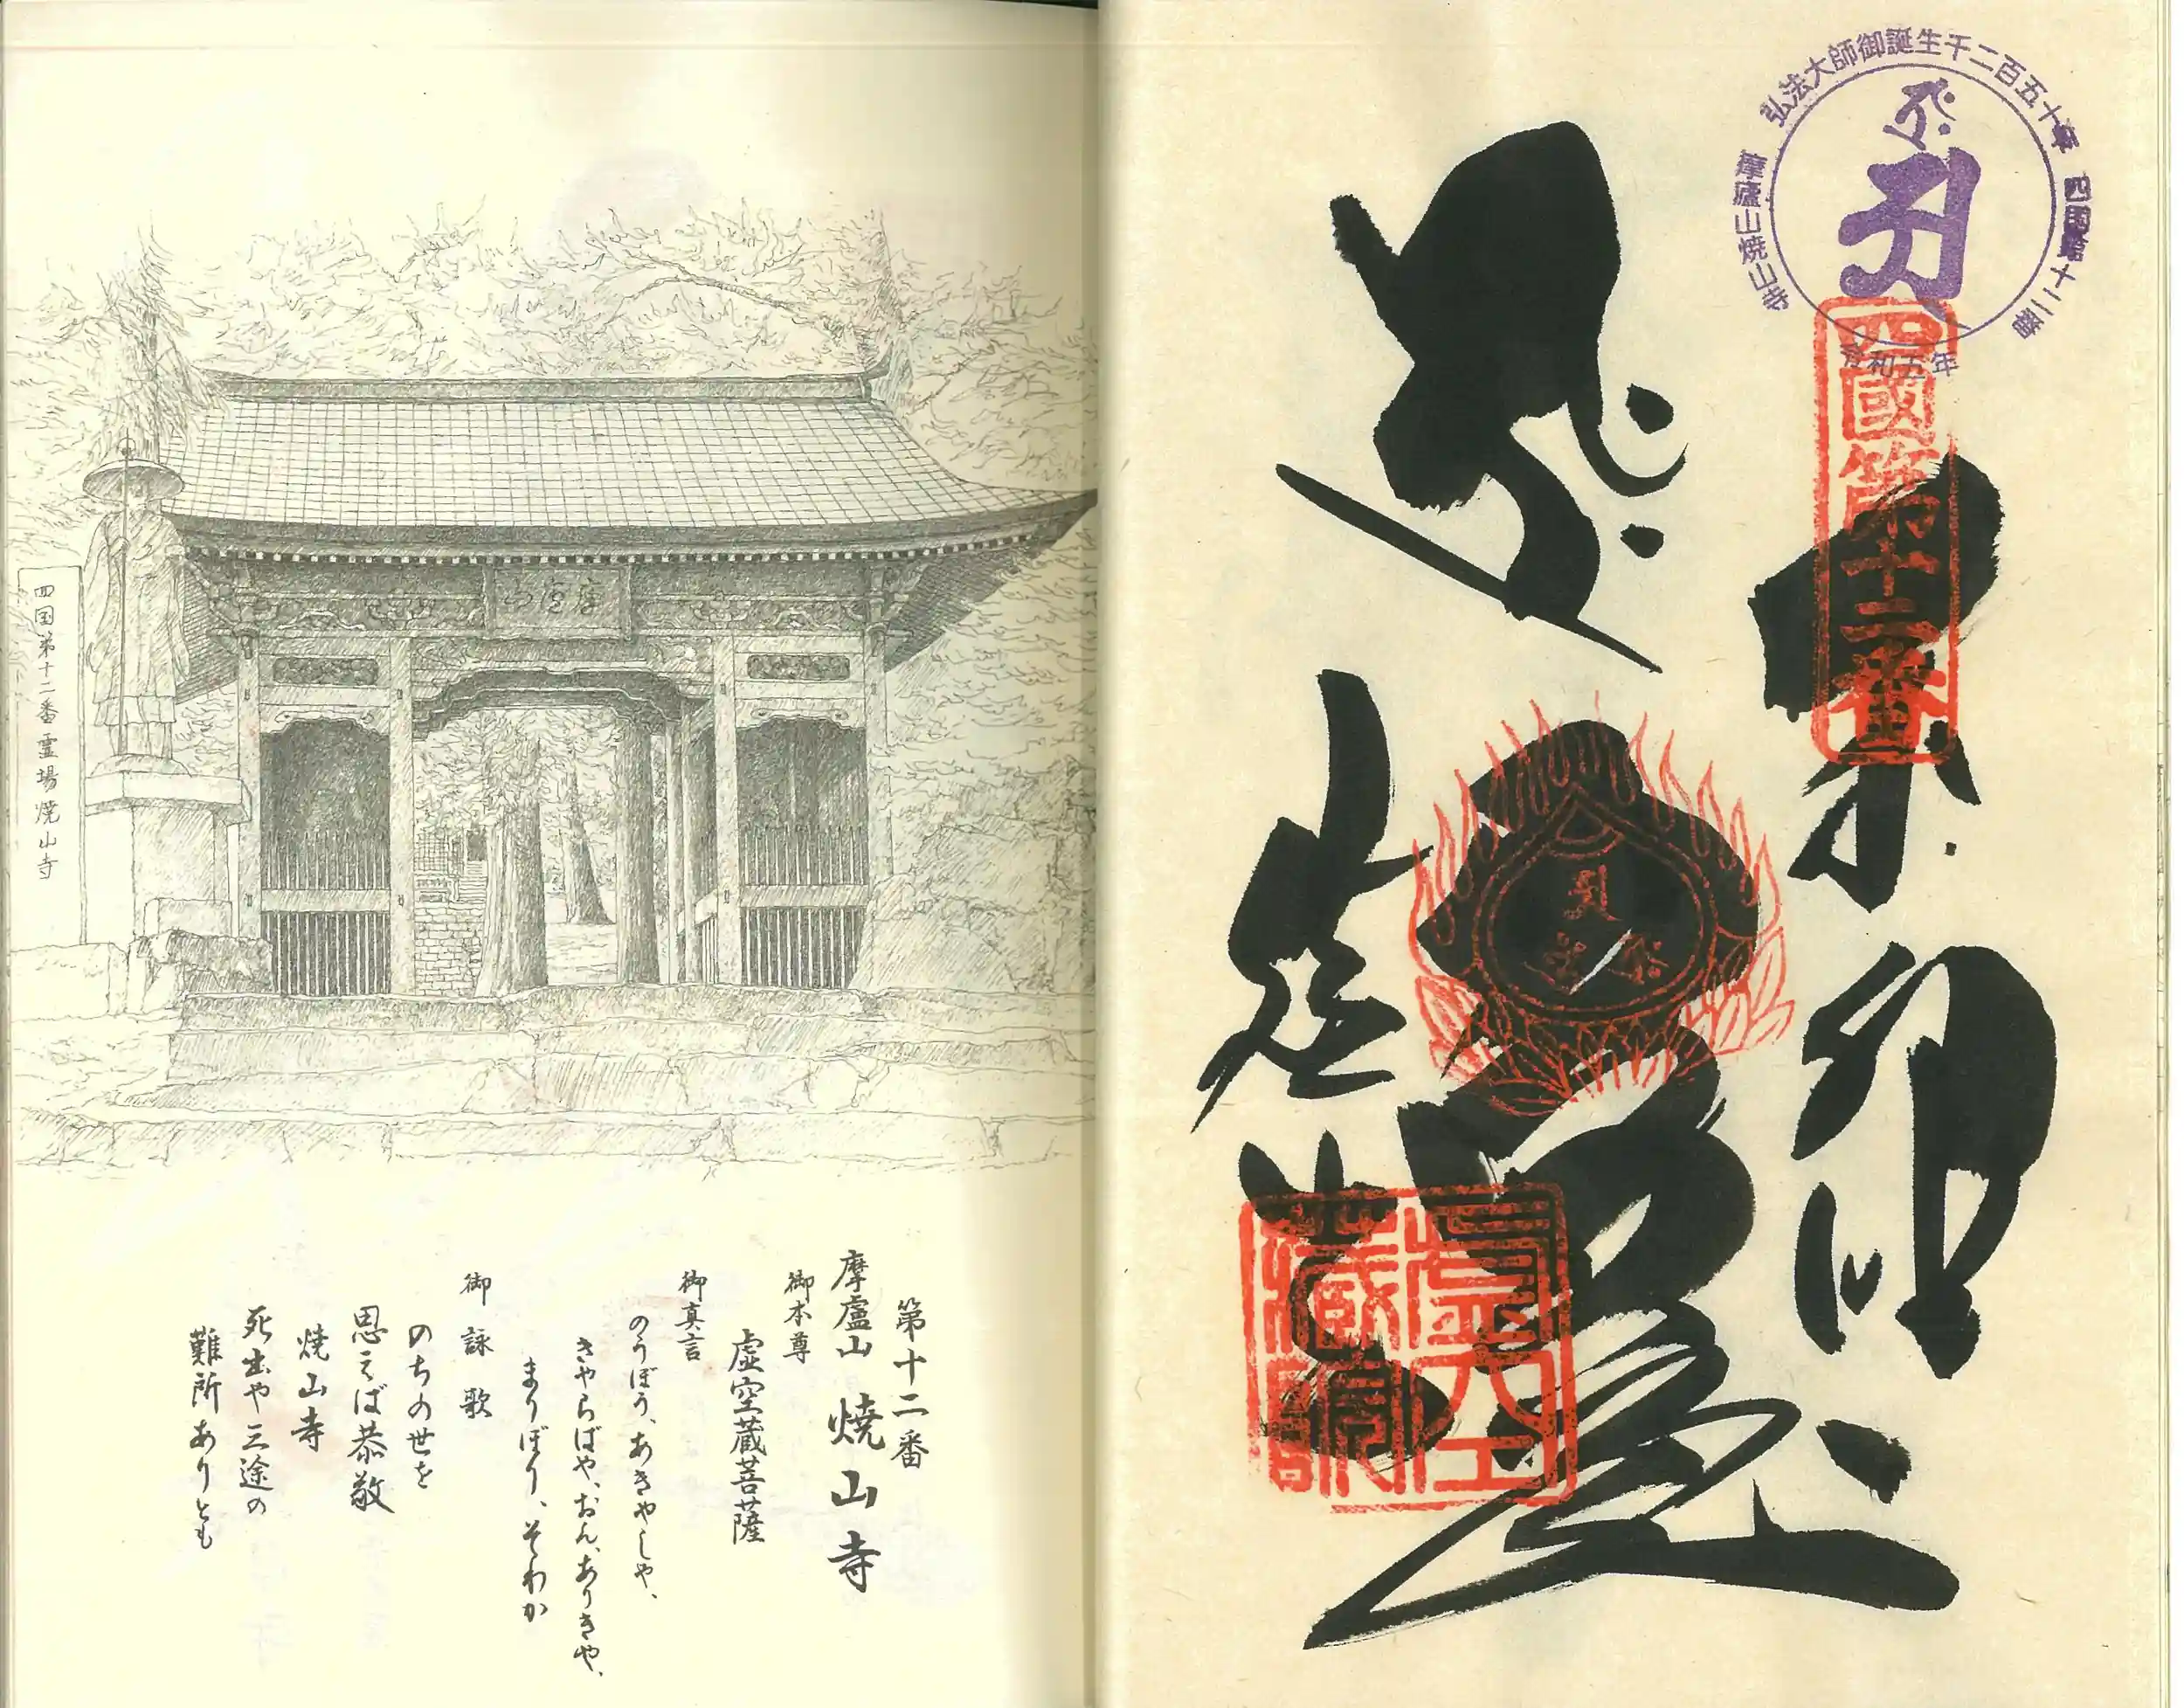 弘法大師御誕生千二百五十年
四国第十二番
摩廬山焼山寺
令和五年
四國第十二番
奉納
焼山寺
摩廬山
四国第十二番霊場焼山寺
第十二番
摩盧山 焼山寺
御本尊
虚空蔵菩薩
御真言
のうぼう、あきゃしゃ、
きゃらばや、おん、ありきゃ、
まりぼり、そわか
御詠歌
のちの世を
思えば恭敬
焼山寺
死出や三途の
難所ありとも